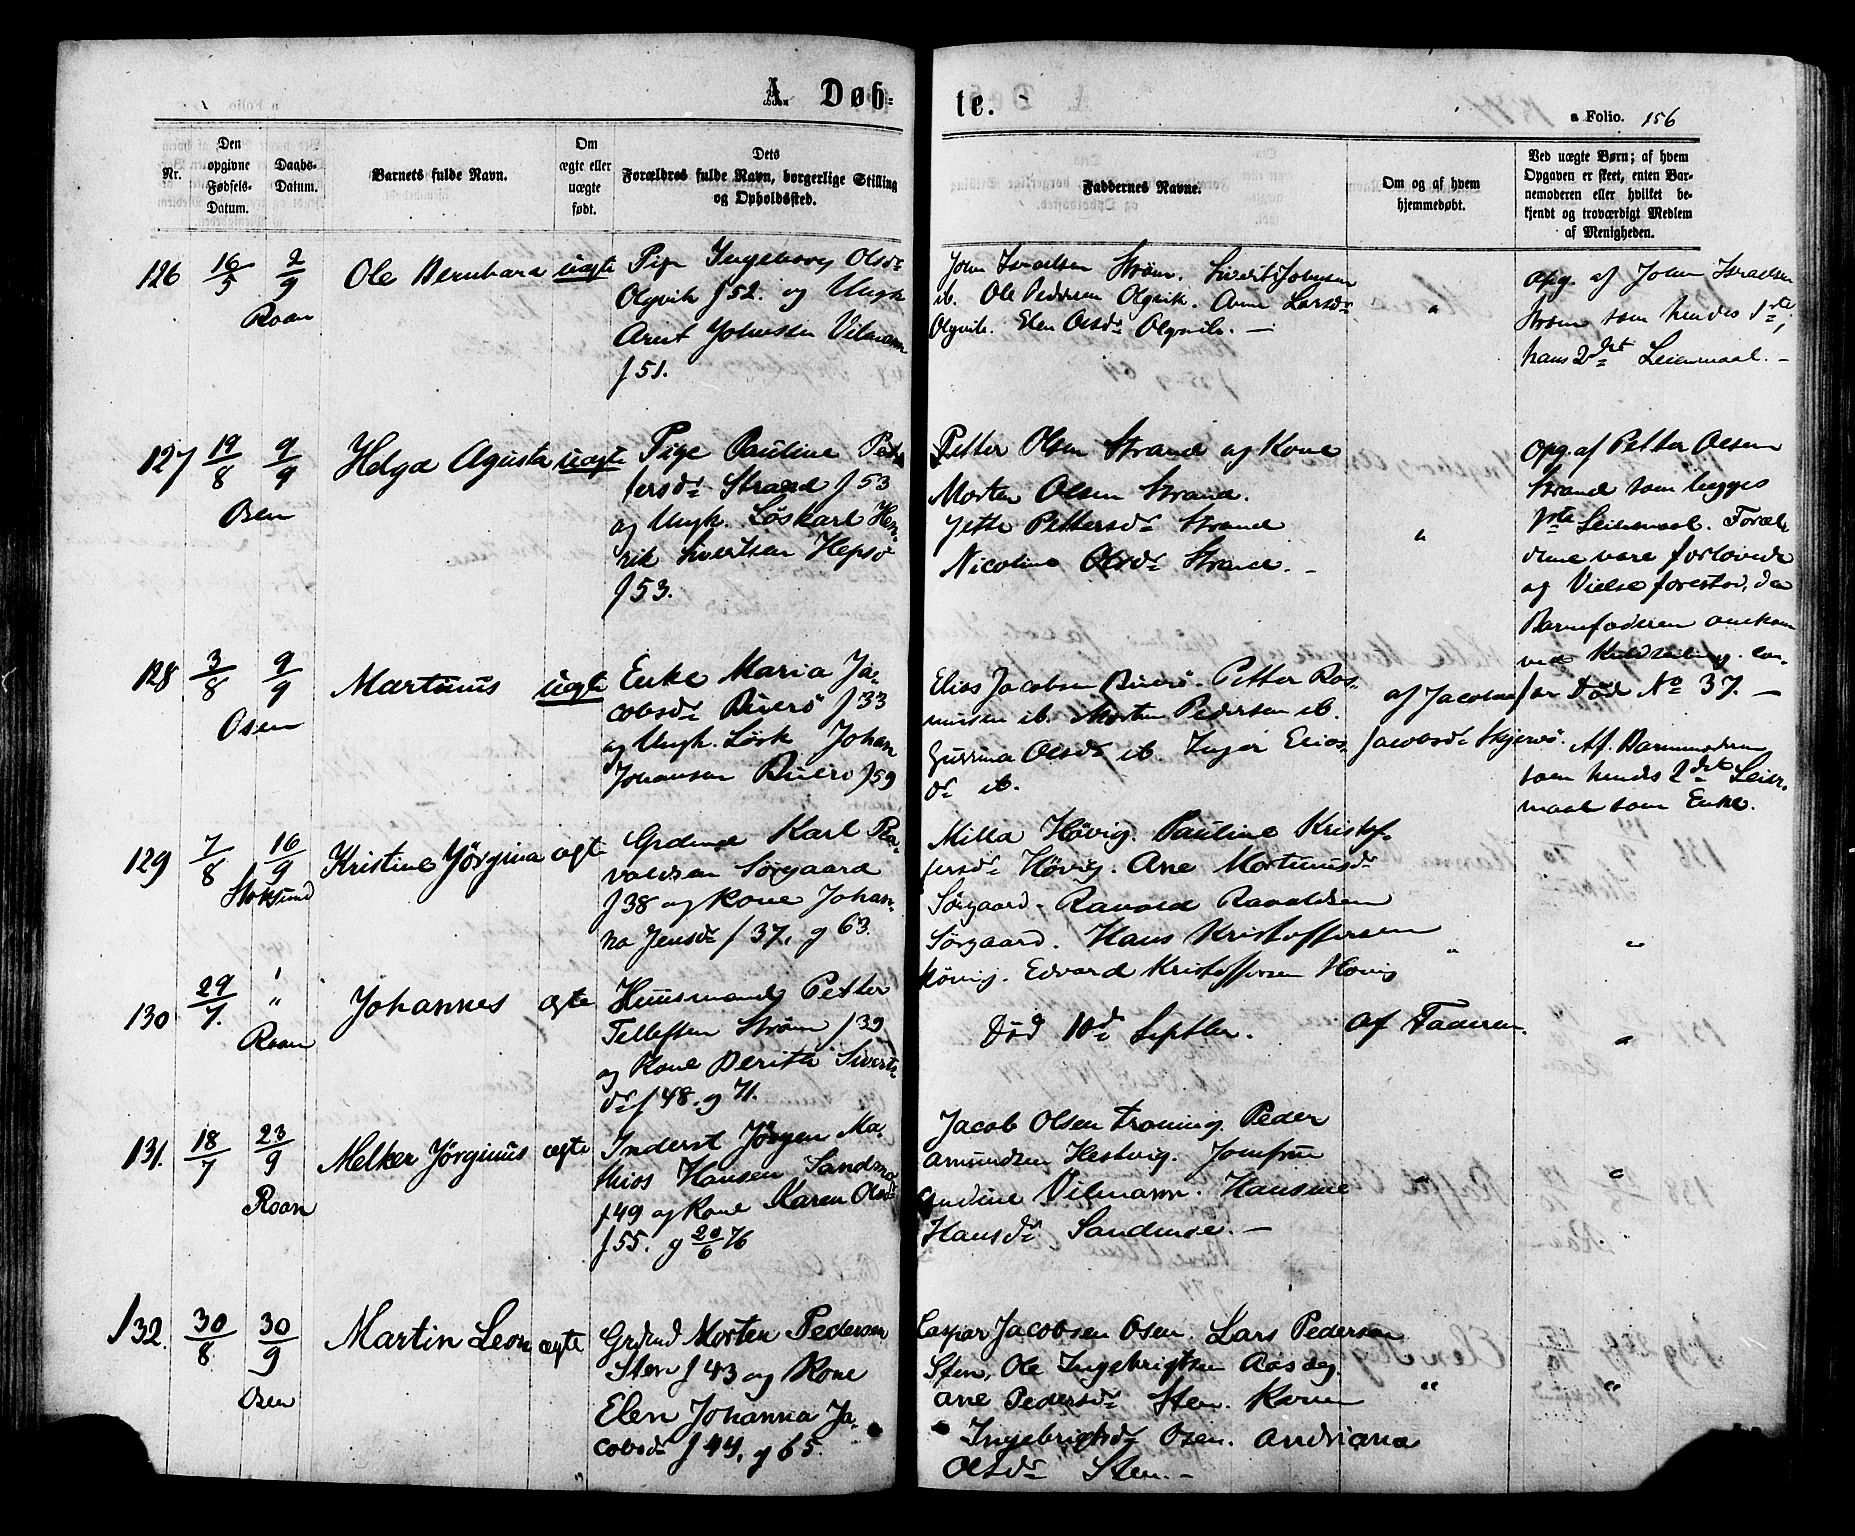 A. Døb-
te.
a Folio. 156
Nr.
Den opgivne Fødsels-Datum.
Daabs-Datum.
Barnets fulde Navn.
Om ægte eller uægte født.
Dets Forældres fulde Navn, borgerlige Stilling og Opholdssted.
Faddernes Navne.
Om og af hvem hjemmedøbt.
Ved uægte Børn; af hvem Opgaven er skeet, enten Barnemoderen eller hvilket bekjendt og troværdigt Medlem af Menigheden.
126
16/5
2/9
Roan
Ole Bernhard
uægte
Pige Ingeborg Olsdr
Olgvik f 52. og Ungk
Arnt Johnsen Vilmann
f 51.
John Israelsen Strøm. Sivert Johnsen
ib. Ole Pedersen Olgvik. Anne Larsdr
Olgvik. Elen Olsdr Olgvik. —
"
Opg. af John Israelsen
Strøm som hendes 1ste,
hans 2det Leiermaal. —
127
19/8
9/9
Osen
Helga Agusta
uægte
Pige Pauline Pet
tersdr Strand f 53
og Ungk. Løskarl Hen
rik Sivertsen Hepsø
f 53.
Petter Olsen Strand og Kone
Morten Olsen Strand.
Jette Pettersdr Strand
Nicoline Olsdr Strand. —
"
Opg. af Petter Olsen
Strand som begges
1ste Leiermaal. Foræl
drene vare forlovede
og Vielse forestod, da
Barnefaderen omkom
ved Kuldseiling. con-
fer Død No 37. —
128
3/8
9/9
Osen
Martinus
uægte
Enke Maria Ja-
cobsdr Buerø f 33
og Ungk. Løsk Johan
Johansen Buerø f 59
Elias Jacobsen Buerø. Petter Ras-
mussen ib. Morten Pedersen ib.
Gurrina Olsdr ib. Inger Elias-
dr ib.
af Jacobaa
Jacobsdr Skjervø.
Af Barnemoderen
som hendes 2det Leier-
maal som Enke.
129
7/8
16/9
Stoksund
Kristine Jørgina
ægte
Grdmd Karl Ra-
valdsen Sørgaard
f 38 og Kone Johan-
na Jensdr f 37. g 63.
Milla Høvig. Pauline Kristof-
fersdr Høvig. Ane Mortinusdr
Sørgaard. Ravald Ravaldsen
Sørgaard. Hans Kristoffersen
Høvig. Edvard Kristoffersen Høvig
"
"
130
29/7.
"
Roan
Johannes
ægte
Huusmand Petter
Tellefsen Strøm f 39
og Kone Berith Siverts
dr f 48. g 71.
Død 10de Septbr.
af Faderen.
"
131.
18/7
23/9
Roan
Melker Jørginus
ægte
Inderst Jørgen Ma-
thios Hansen Sandmo
f 49 og Kone Karen Olsdr
f 55. g 20/6 76
Jacob Olsen Troning. Peder
Amundsen Hestvig. Jomfru
Andine Vilmann. Hansine
Hansdr Sandmoe. —
"
"
132.
30/8
30/9
Osen
Martin Leon
ægte
Grdmd Morten Pedersen
Sten f 43 og Kone
Elen Johanna Ja-
cobsdr f 44. g 65.
Caspar Jacobsen Osen. Lars Pedersen
Sten. Ole Ingebrigtsen Aasdeg.
Ane Pedersdr Sten. Karen
Ingebrigtsdr Osen. Andriana
Olsdr Sten. —
"
"